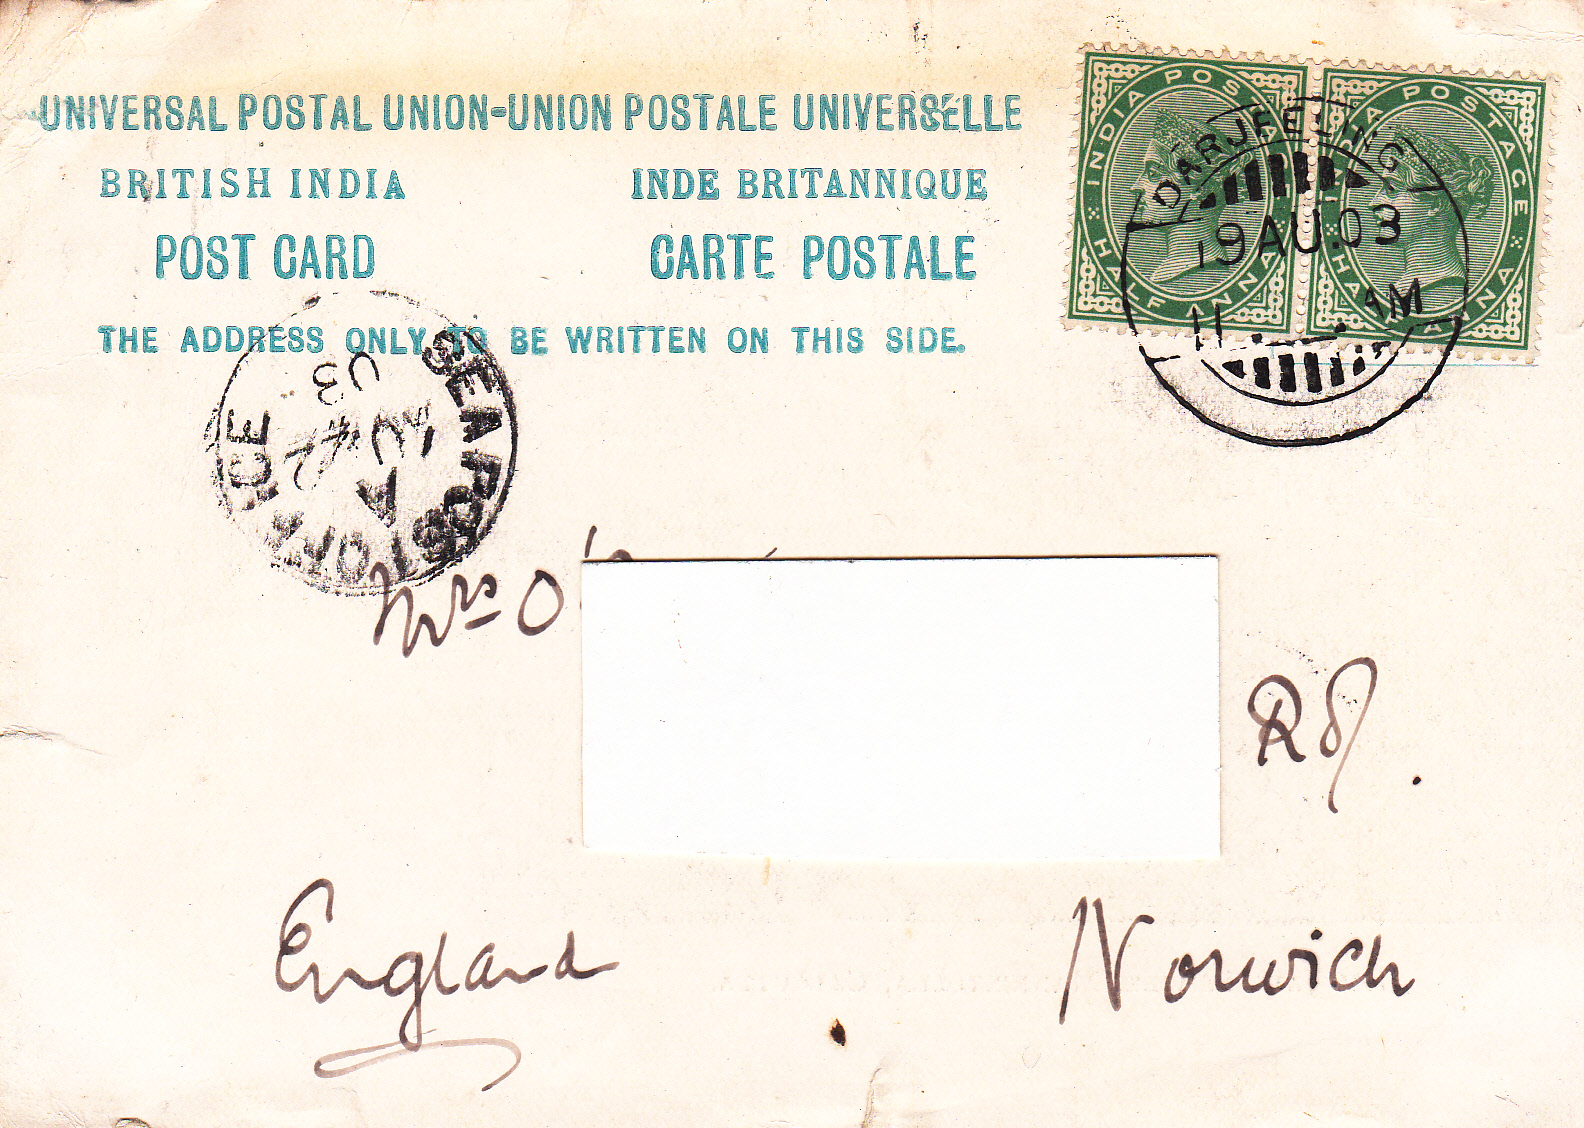 UNIVERSAL POSTAL UNION-UNION POSTALE UNIVERSÉLLE
BRITISH INDIA INDE BRITANNIQUE
POST CARD CARTE POSTALE
THE ADDRESS ONLY TO BE WRITTEN ON THIS SIDE.
INDIA POSTAGE
HALF ANNA
INDIA POSTAGE
HALF ANNA
DARJEELING
19 AU.03
11 AM
SEA POST OFFICE
A
AU
03
Mrs O'
Rd.
England Norwich